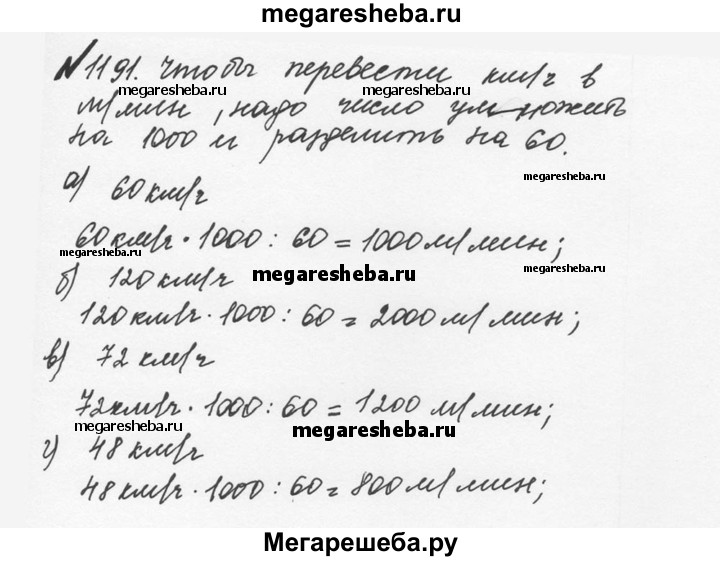 megaresheba.ru
№1191. Чтобы перевести км/ч в
megaresheba.ru megaresheba.ru
м/мин, надо число умножить
на 1000 и разделить на 60.
megaresheba.ru
а) 60 км/ч
60 км/ч · 1000 : 60 = 1000 м/мин;
megaresheba.ru
б) 120 км/ч megaresheba.ru megaresheba.ru
120 км/ч · 1000 : 60 = 2000 м/мин;
в) 72 км/ч
72 км/ч · 1000 : 60 = 1200 м/мин;
megaresheba.ru megaresheba.ru
г) 48 км/ч
48 км/ч · 1000 : 60 = 800 м/мин;
Мегарешеба.ру